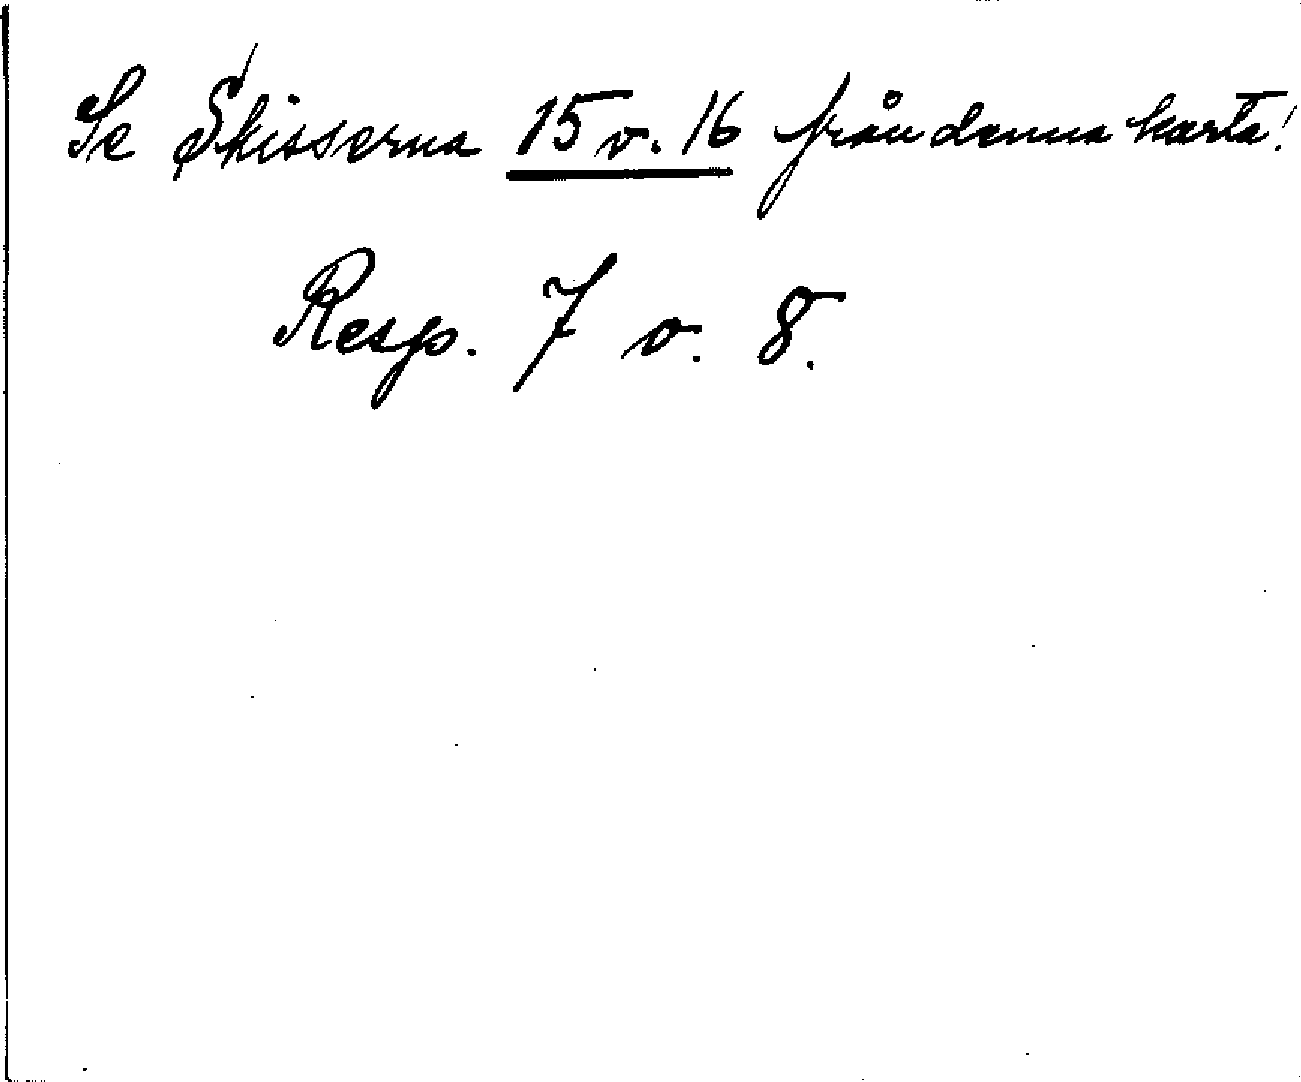 Se Skisserna 15 o. 16 från denna karta!
Resp. 7 o. 8.